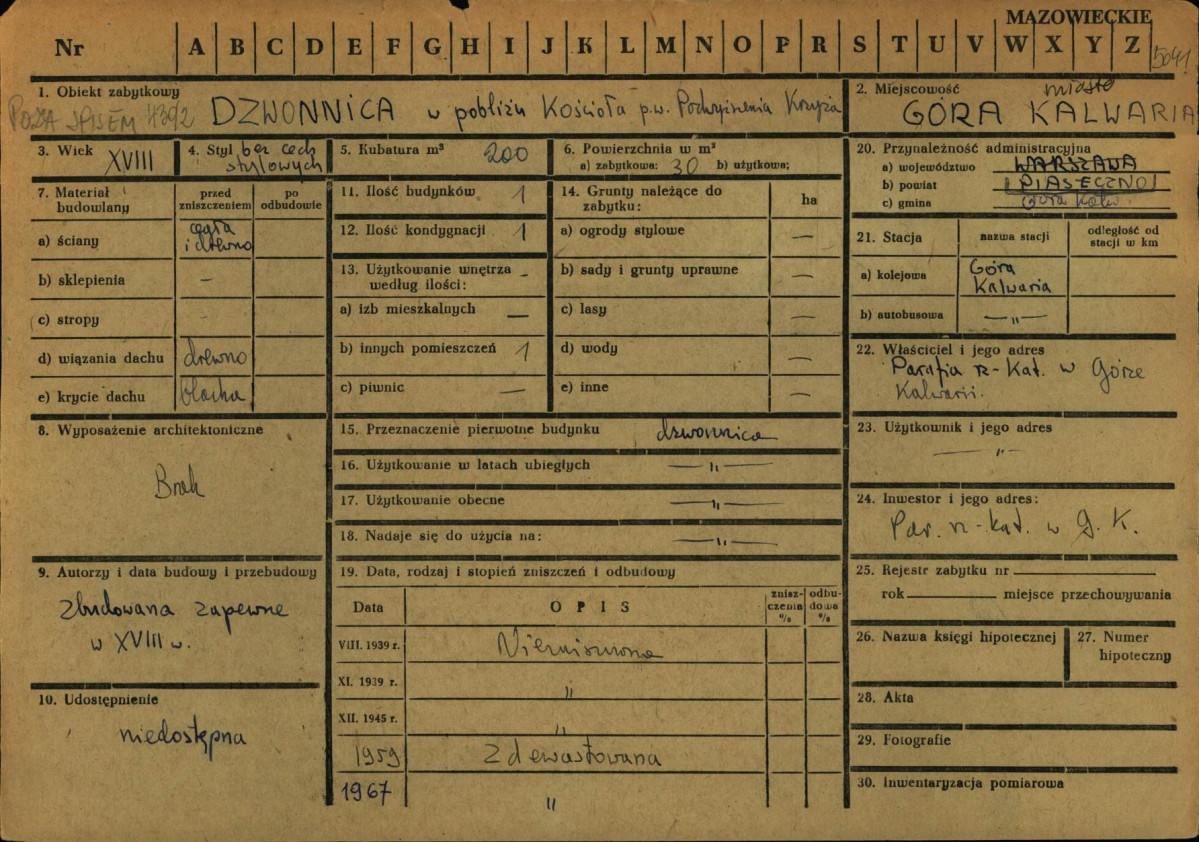 MAZOWIECKIE
Nr A B C D E F G H I J K L M N O P R S T U V W X Y Z
5041
1. Obiekt zabytkowy
POZA SPISEM 4392 DZWONNICA w pobliżu Kościoła p.w. Podwyższenia Krzyża
2. Miejscowość miasto
GÓRA KALWARIA
3. Wiek XVIII
4. Styl bez cech
stylowych
5. Kubatura m³ 200
6. Powierzchnia w m²
a) zabytkowa: 30 b) użytkowa;
7. Materiał budowlany
przed zniszczeniem
po odbudowie
a) ściany cegła i drewno
b) sklepienia —
c) stropy -
d) wiązania dachu drewno
e) krycie dachu blacha
8. Wyposażenie architektoniczne
Brak
9. Autorzy i data budowy i przebudowy
Zbudowana zapewne
w XVIII w.
10. Udostępnienie
niedostępna
11. Ilość budynków 1
12. Ilość kondygnacji 1
13. Użytkowanie wnętrza —
według ilości:
a) izb mieszkalnych —
b) innych pomieszczeń 1
c) piwnic —
14. Grunty należące do
zabytku: ha
a) ogrody stylowe —
b) sady i grunty uprawne —
c) lasy —
d) wody —
e) inne —
15. Przeznaczenie pierwotne budynku dzwonnica
16. Użytkowanie w latach ubiegłych —"—
17. Użytkowanie obecne —"—
18. Nadaje się do użycia na: —"—
19. Data, rodzaj i stopień zniszczeń i odbudowy
Data OPIS znisz-czenia % odbu-dowa %
VIII. 1939 r. Niezniszczona
XI. 1939 r. "
XII. 1945 r. "
1959 Zdewastowana
1967 "
20. Przynależność administracyjna
a) województwo WARSZAWA
b) powiat PIASECZNO
c) gmina Góra Kalw.
21. Stacja nazwa stacji odległość od
stacji w km
a) kolejowa Góra
Kalwaria
b) autobusowa —"—
22. Właściciel i jego adres
Parafia rz-kat. w Górze
Kalwarii.
23. Użytkownik i jego adres
—"—
24. Inwestor i jego adres:
Par. rz-kat. w G. K.
25. Rejestr zabytku nr
rok miejsce przechowywania
26. Nazwa księgi hipotecznej
27. Numer
hipoteczny
28. Akta
29. Fotografie
30. Inwentaryzacja pomiarowa